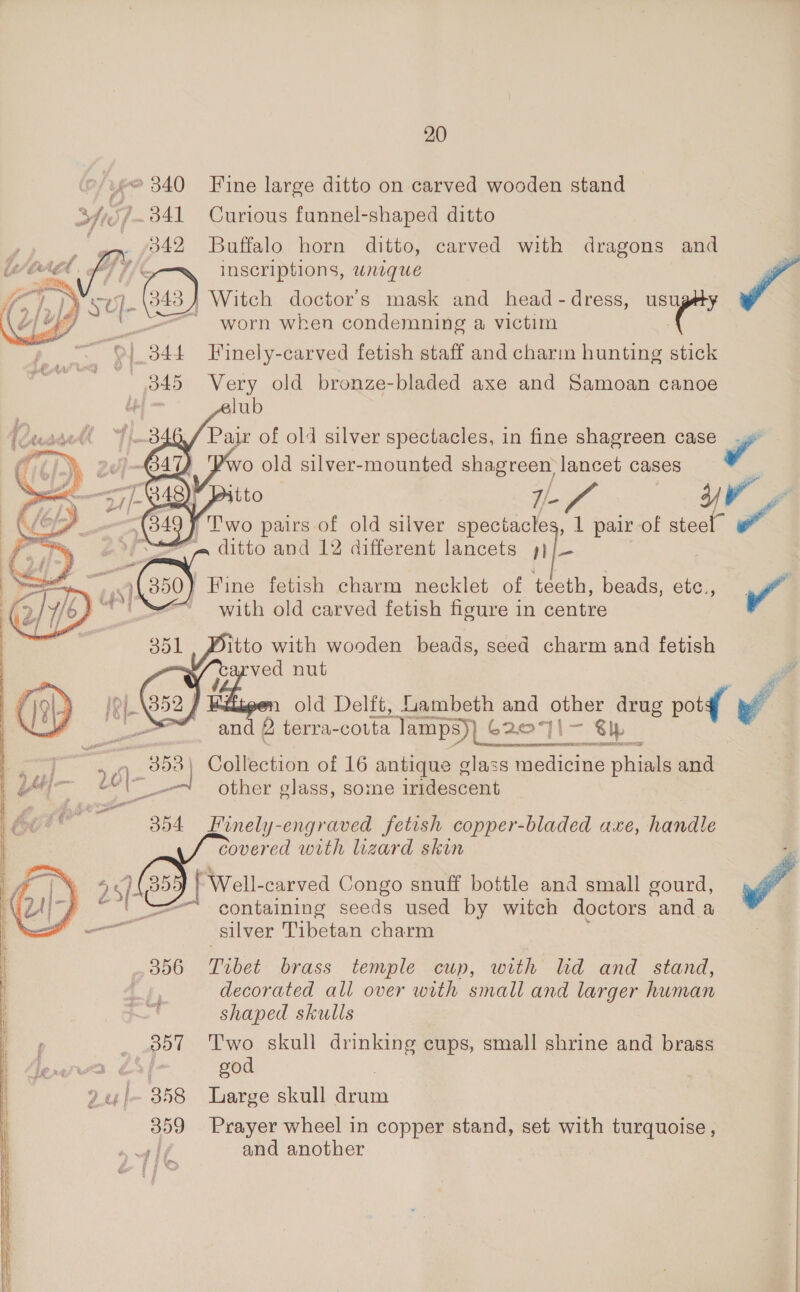 20
340 Fine large ditto on carved wooden stand
341 Curious funnel-shaped ditto
342 Buffalo horn ditto, carved with dragons and
inscriptions, unique
343 Witch doctor's mask and head-dress, usually
worn when condemning a victim
344 Finely-carved fetish staff and charm hunting stick
345 Very old bronze-bladed axe and Samoan canoe
club
346 Pair of old silver spectacles, in fine shagreen case
347 Two old silver-mounted shagreen lancet cases
348 Ditto 7/-
349 Two pairs of old silver spectacles, 1 pair of steel
ditto and 12 different lancets
350 Fine fetish charm necklet of teeth, beads, etc.,
with old carved fetish figure in centre
351 Ditto with wooden beads, seed charm and fetish
carved nut
352 old Delft, Lambeth and other drug pots
and 2 terra-cotta lamps
353 Collection of 16 antique glass medicine phials and
other glass, some iridescent
354 Finely-engraved fetish copper-bladed axe, handle
covered with lizard skin
355 Well-carved Congo snuff bottle and small gourd,
containing seeds used by witch doctors and a
silver Tibetan charm
356 Tibet brass temple cup, with lid and stand,
decorated all over with small and larger human
shaped skulls
357 Two skull drinking cups, small shrine and brass
god
358 Large skull drum
359 Prayer wheel in copper stand, set with turquoise,
and another